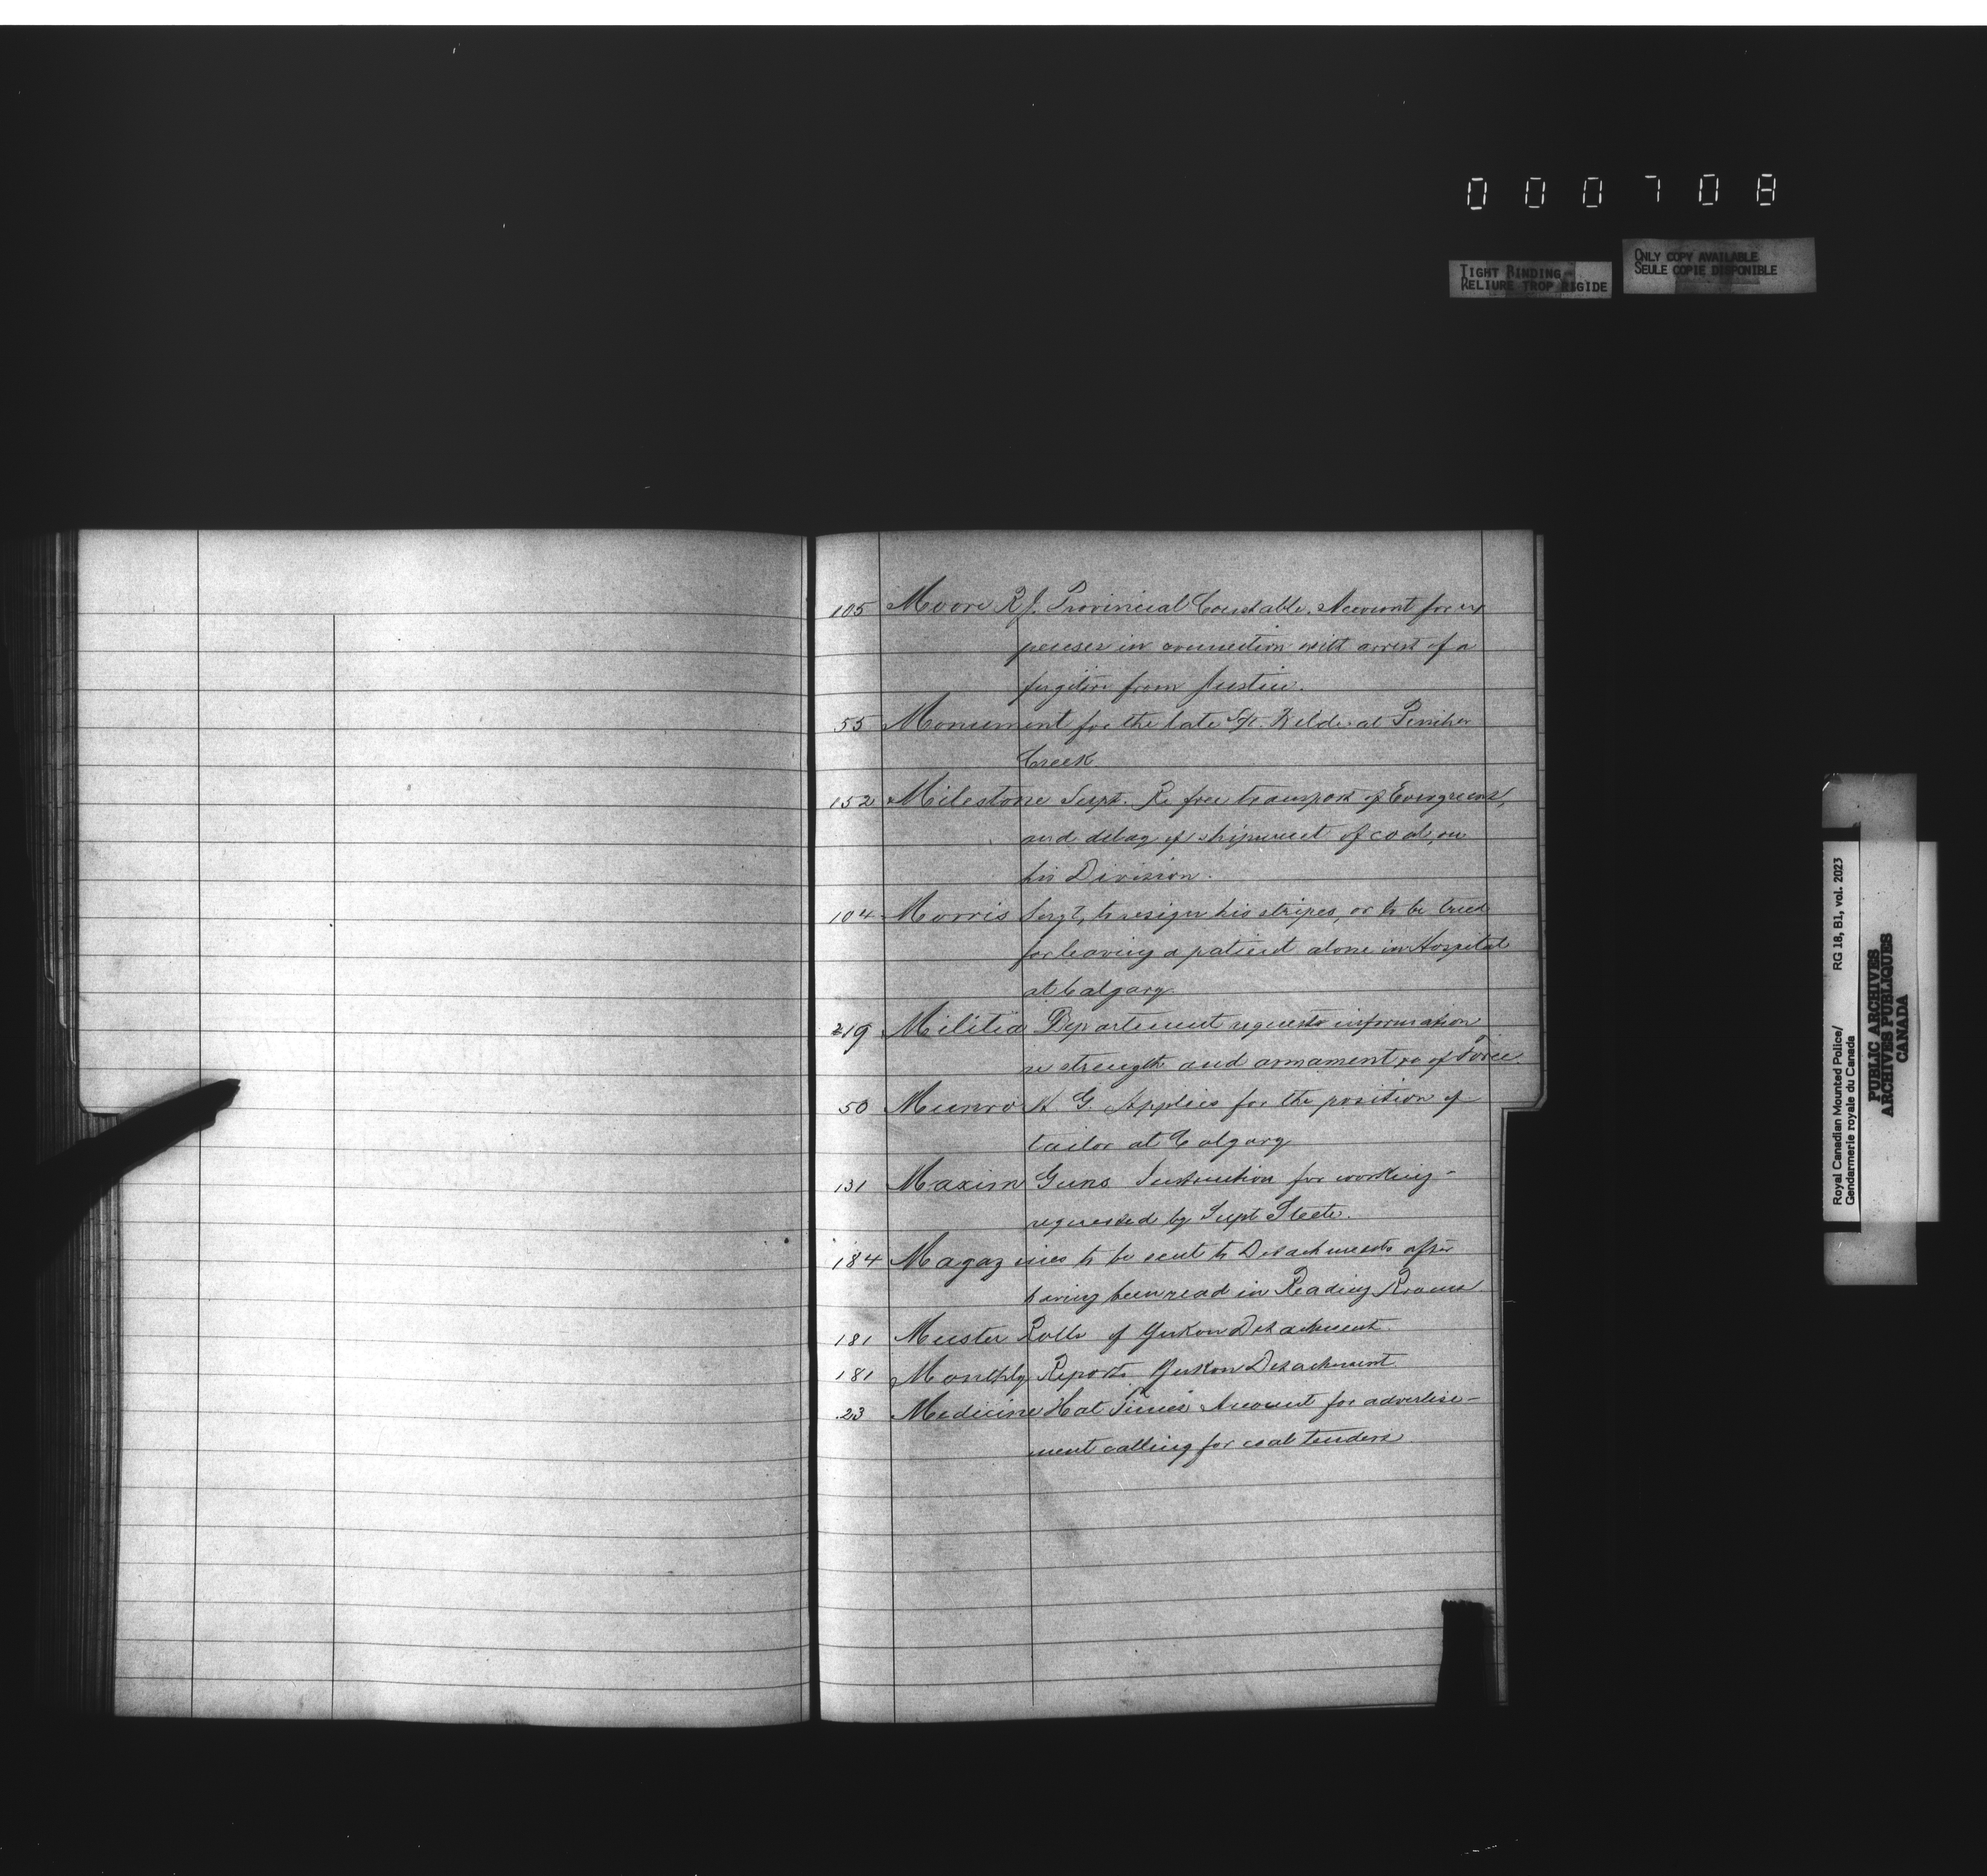 000708
TIGHT BINDING
RELIURE TROP RIGIDE
ONLY COPY AVAILABLE
SEULE COPIE DISPONIBLE
105 Moore R J. Provincial Constable. Account for ex
penses in connection with arrest of a
fugitive from Justice.
55 Monument for the late Sgt. Wilde at Pincher
Creek
152 Milestone Supt. Re free transport of Evergreens,
and delay of shipment of coal, on
his Division.
104 Morris Sergt, to resign his stripes, or to be tried
for leaving a patient alone in Hospital
at Calgary.
219 Militia Department requests information
re strength and armament &c of Force.
50 Munro A. G. Applies for the position of
tailor at Calgary
131 Maxim Guns Instruction for working-
requested by Supt Steele.
184 Magazines to be sent to Detachments after
having been read in Reading Rooms
181 Muster Rolls of Yukon Detachment.
181 Monthly Reports Yukon Detachment
23 Medicine Hat Times Account for advertise-
ment calling for coal tenders.
Royal Canadian Mounted Police/
Gendarmerie royale du Canada
RG 18, B1, vol. 2023
PUBLIC ARCHIVES
ARCHIVES PUBLIQUES
CANADA